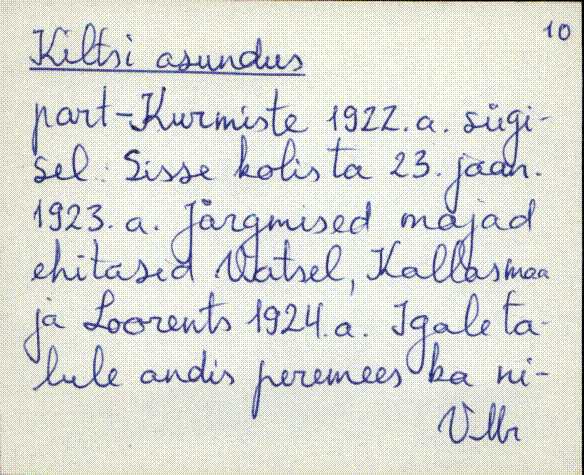 10
Kiltsi asundus
part-Kurmiste 1922. a. sügi-
sel. Sisse kolis ta 23. jaan.
1923. a. Järgmised majad
ehitasid Vatsel, Kallasmaa
ja Loorents 1924. a. Igale ta-
lule andis peremees ka ni-